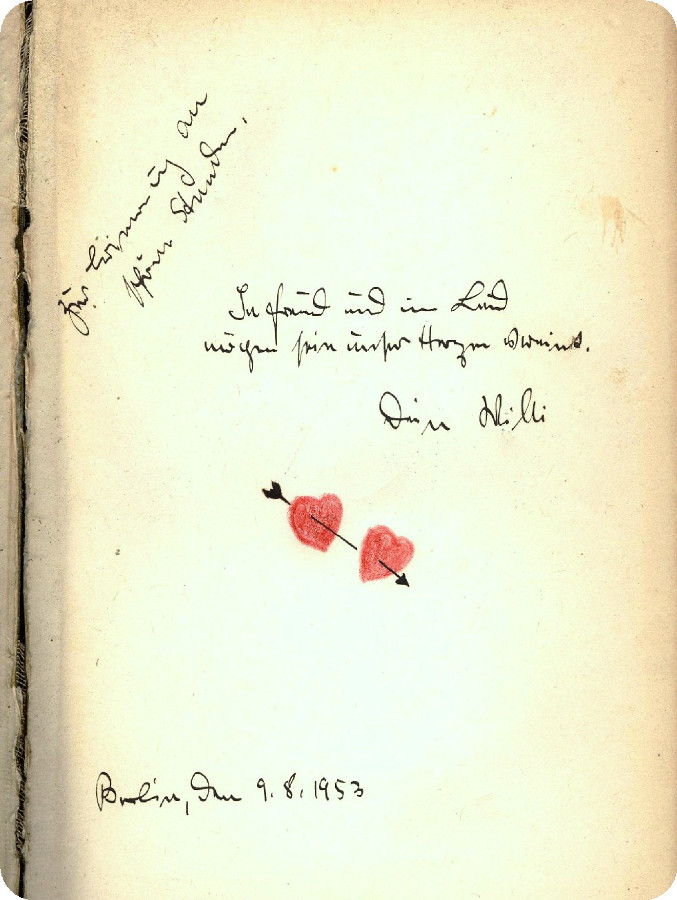 Zur Erinnerung an
schöne Stunden.
In Freud und in Leid
mögen sein unser Herzen vereint.
Dein Willi
Berlin, den 9.8.1953